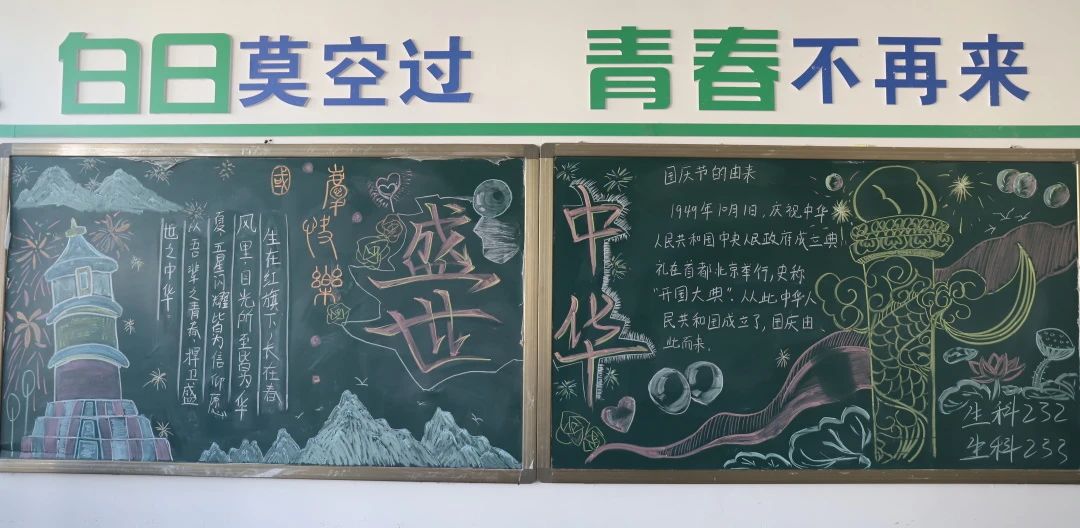 白日莫空过 青春不再来
盛世
國慶快樂
生在红旗下,长在春
风里.目光所至皆为华
夏.五星闪耀皆为信仰.愿
以吾辈之青春,捍卫盛
世之中华.
中华
国庆节的由来
1949年10月1日,庆祝中华
人民共和国中央人民政府成立典
礼在首都北京举行,史称
“开国大典”.从此中华人
民共和国成立了,国庆由
此而来.
生科232
生科233